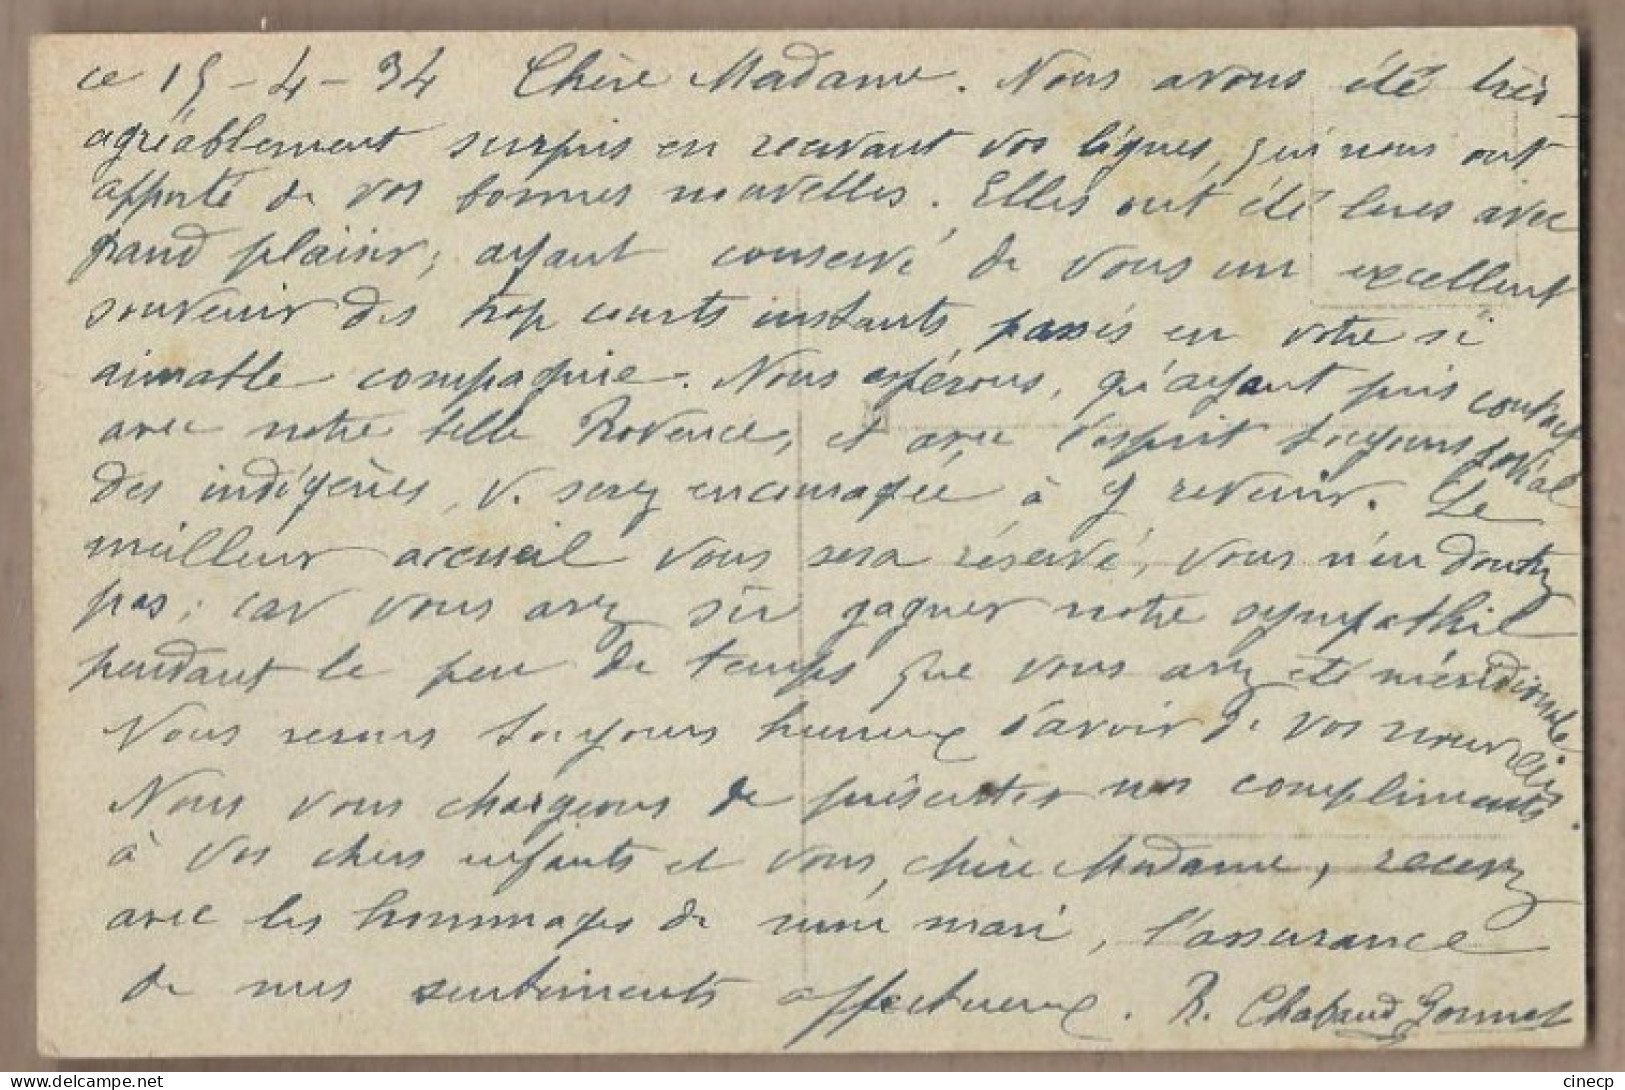 ce 15-4-34 Chère Madame. Nous avons été très
agréablement surpris en recevant vos lignes, qui nous ont
apporté de vos bonnes nouvelles. Elles ont été lues avec
grand plaisir; ayant conservé de vous un excellent
souvenir des trop courts instants passés en votre si
aimable compagnie. Nous espérons, qu'ayant pris contact
avec notre belle Provence, et avec l'esprit toujours jovial
des indigènes, v. serez encouragée à y revenir. Le
meilleur accueil vous sera réservé, vous n'en doutez
pas; car vous avez su gagner notre sympathie
pendant le peu de temps que vous avez été méridionale
Nous serons toujours heureux d'avoir de vos nouvelles
Nous vous chargeons de présenter nos compliments
à vos chers enfants et vous, chère Madame, recevez
avec les hommages de mon mari, l'assurance
de mes sentiments affectueux. R. Chabaud Gonnet
cinecp